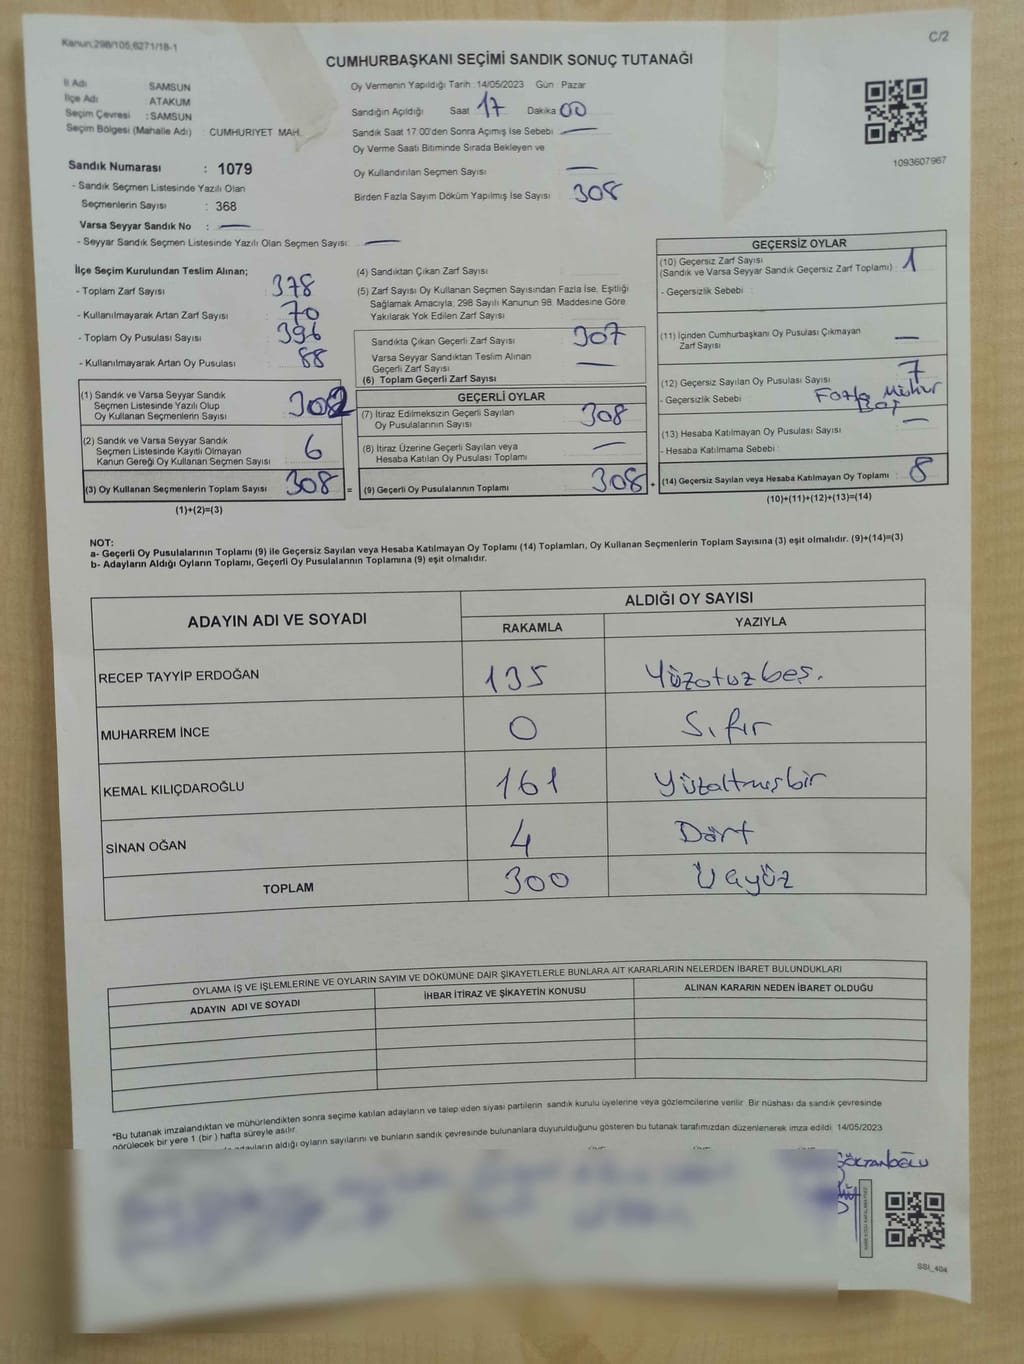 Kanun:298/105;6271/18-1
C/2
CUMHURBAŞKANI SEÇİMİ SANDIK SONUÇ TUTANAĞI
İl Adı SAMSUN
İlçe Adı ATAKUM
Seçim Çevresi : SAMSUN
Seçim Bölgesi (Mahalle Adı) : CUMHURİYET MAH.
Oy Vermenin Yapıldığı Tarih : 14/05/2023 Gün : Pazar
Sandığın Açıldığı Saat 17 Dakika 00
Sandık Saat 17:00'den Sonra Açımış İse Sebebi —
Oy Verme Saati Bitiminde Sırada Bekleyen ve
Oy Kullandırılan Seçmen Sayısı —
Birden Fazla Sayım Döküm Yapılmış İse Sayısı 308
1093607967
Sandık Numarası : 1079
- Sandık Seçmen Listesinde Yazılı Olan
Seçmenlerin Sayısı : 368
Varsa Seyyar Sandık No : —
- Seyyar Sandık Seçmen Listesinde Yazılı Olan Seçmen Sayısı: —
İlçe Seçim Kurulundan Teslim Alınan;
- Toplam Zarf Sayısı : 378
- Kullanılmayarak Artan Zarf Sayısı : 70
- Toplam Oy Pusulası Sayısı : 396
- Kullanılmayarak Artan Oy Pusulası : 88
(1) Sandık ve Varsa Seyyar Sandık
Seçmen Listesinde Yazılı Olup
Oy Kullanan Seçmenlerin Sayısı : 302
(2) Sandık ve Varsa Seyyar Sandık
Seçmen Listesinde Kayıtlı Olmayan
Kanun Gereği Oy Kullanan Seçmen Sayısı : 6
(3) Oy Kullanan Seçmenlerin Toplam Sayısı : 308 =
(1)+(2)=(3)
(4) Sandıktan Çıkan Zarf Sayısı :
(5) Zarf Sayısı Oy Kullanan Seçmen Sayısından Fazla İse, Eşitliği
Sağlamak Amacıyla, 298 Sayılı Kanunun 98. Maddesine Göre
Yakılarak Yok Edilen Zarf Sayısı :
Sandıkta Çıkan Geçerli Zarf Sayısı : 307
Varsa Seyyar Sandıktan Teslim Alınan
Geçerli Zarf Sayısı : —
(6) Toplam Geçerli Zarf Sayısı
GEÇERLİ OYLAR
(7) İtiraz Edilmeksizin Geçerli Sayılan
Oy Pusulalarının Sayısı : 308
(8) İtiraz Üzerine Geçerli Sayılan veya
Hesaba Katılan Oy Pusulası Toplamı : —
(9) Geçerli Oy Pusulalarının Toplamı : 308 +
GEÇERSİZ OYLAR
(10) Geçersiz Zarf Sayısı
(Sandık ve Varsa Seyyar Sandık Geçersiz Zarf Toplamı) : 1
- Geçersizlik Sebebi :
(11) İçinden Cumhurbaşkanı Oy Pusulası Çıkmayan
Zarf Sayısı : —
(12) Geçersiz Sayılan Oy Pusulası Sayısı : 7
- Geçersizlik Sebebi : Fazla Mühür
(13) Hesaba Katılmayan Oy Pusulası Sayısı : —
- Hesaba Katılmama Sebebi :
(14) Geçersiz Sayılan veya Hesaba Katılmayan Oy Toplamı : 8
(10)+(11)+(12)+(13)=(14)
NOT:
a- Geçerli Oy Pusulalarının Toplamı (9) ile Geçersiz Sayılan veya Hesaba Katılmayan Oy Toplamı (14) Toplamları, Oy Kullanan Seçmenlerin Toplam Sayısına (3) eşit olmalıdır. (9)+(14)=(3)
b- Adayların Aldığı Oyların Toplamı, Geçerli Oy Pusulalarının Toplamına (9) eşit olmalıdır.
ADAYIN ADI VE SOYADI
ALDIĞI OY SAYISI
RAKAMLA YAZIYLA
RECEP TAYYİP ERDOĞAN 135 Yüzotuzbeş.
MUHARREM İNCE 0 Sıfır
KEMAL KILIÇDAROĞLU 161 Yüzaltmışbir
SİNAN OĞAN 4 Dört
TOPLAM 300 Üçyüz
OYLAMA İŞ VE İŞLEMLERİNE VE OYLARIN SAYIM VE DÖKÜMÜNE DAİR ŞİKAYETLERLE BUNLARA AİT KARARLARIN NELERDEN İBARET BULUNDUKLARI
ADAYIN ADI VE SOYADI İHBAR İTİRAZ VE ŞİKAYETİN KONUSU ALINAN KARARIN NEDEN İBARET OLDUĞU
*Bu tutanak imzalandıktan ve mühürlendikten sonra seçime katılan adayların ve talep eden siyasi partilerin sandık kurulu üyelerine veya gözlemcilerine verilir. Bir nüshası da sandık çevresinde
görülecek bir yere 1 (bir) hafta süreyle asılır.
adayların aldığı oyların sayılarını ve bunların sandık çevresinde bulunanlara duyurulduğunu gösteren bu tutanak tarafımızdan düzenlenerek imza edildi. 14/05/2023
GÖKTANOĞLU
SSI_404